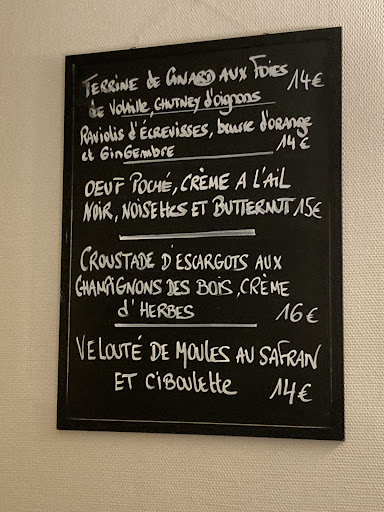 TERRINE de CANARD AUX FOIES 14€
de Volaille, CHUTNEY d'oignons
Raviolis d'ÉCREVISSES, beurre d'orange
et GinGembre 14€
OEUF POCHÉ, CRÈME A L'AIL
NOIR, NOISETTES ET BUTTERNUT 15€
CROUSTADE D'ESCARGOTS AUX
CHAMPIGNONS DES BOIS, CRÈME
d'HERBES 16€
VELOUTÉ DE MOULES AU SAFRAN
ET CIBOULETTE 14€